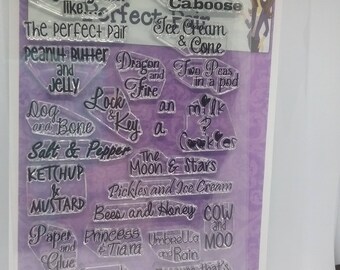 like...
Caboose
Perfect Pair
The Perfect Pair
Ice Cream
& Cone
Peanut Butter
and
Jelly
Dragon
and
Fire
Two Peas
in a pod
Dog
and Bone
Lock
&
Key
an
a
milk
&
Cookies
Salt & Pepper
The
Moon & Stars
KETCHUP
&
MUSTARD
Pickles and Ice Cream
Bees and Honey
COW
and
MOO
Paper
and
Glue
Princess
& Tiara
Umbrella
and
Rain